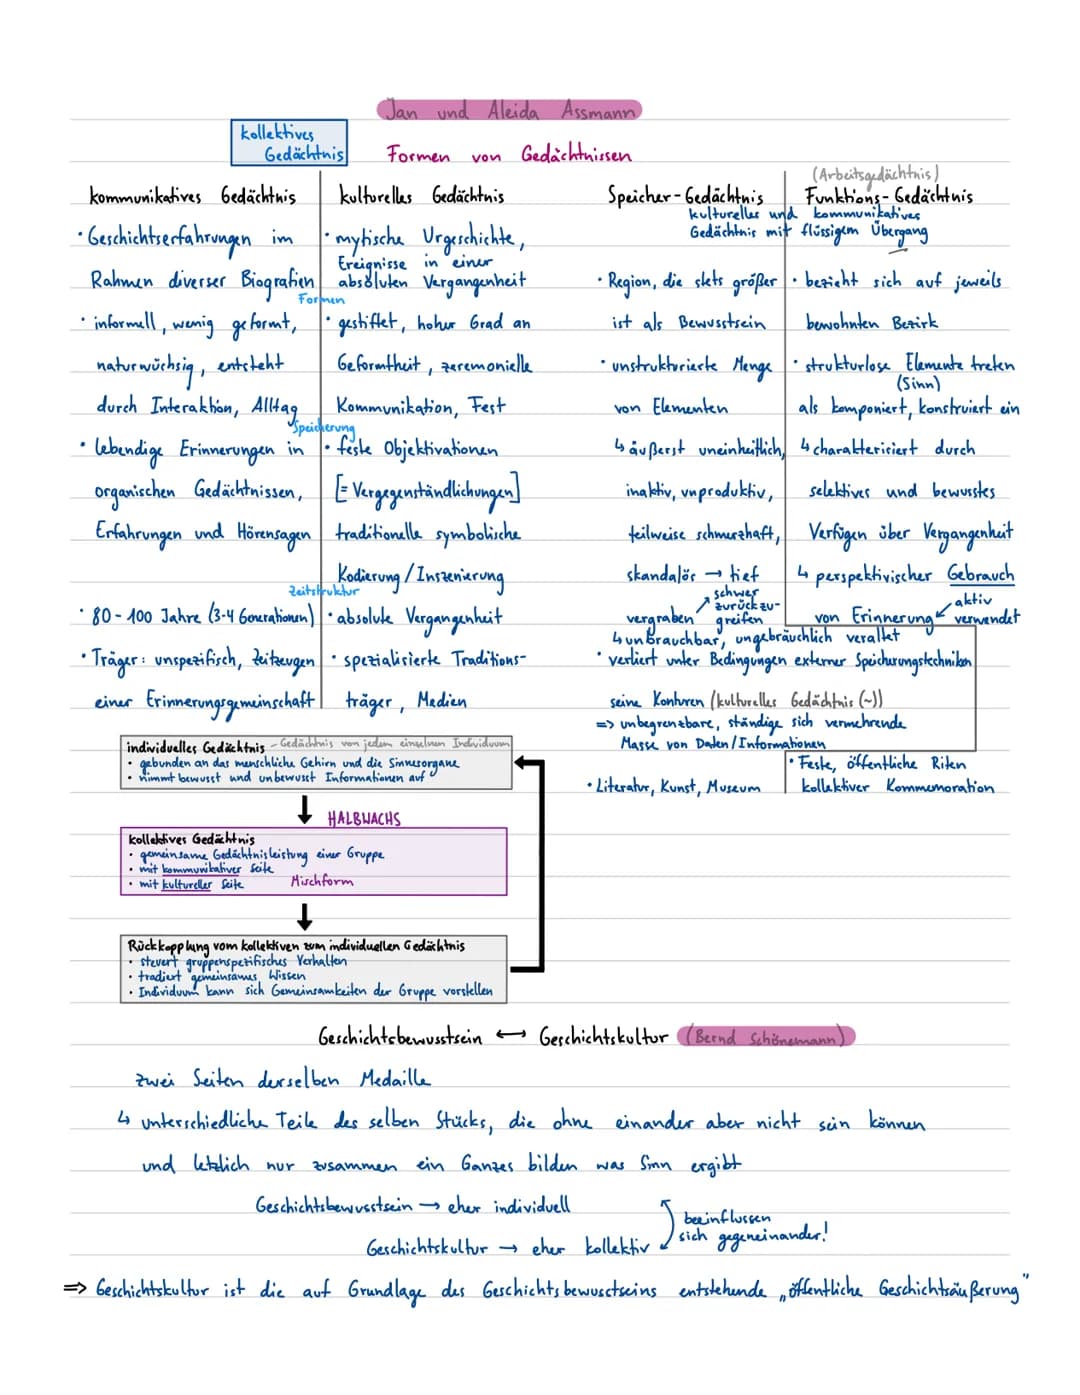 Jan und Aleida Assmann
kollektives
Gedächtnis
Formen von Gedächtnissen
kommunikatives Gedächtnis
• Geschichtserfahrungen im
Rahmen diverser Biografien
Formen
• informell, wenig geformt,
naturwüchsig, entsteht
durch Interaktion, Alltag
Speicherung
• lebendige Erinnerungen in
organischen Gedächtnissen,
Erfahrungen und Hörensagen
Zeitstruktur
• 80-100 Jahre (3-4 Generationen)
• Träger: unspezifisch, Zeitzeugen
einer Erinnerungsgemeinschaft
kulturelles Gedächtnis
• mytische Urgeschichte,
Ereignisse in einer
absoluten Vergangenheit
• gestiftet, hoher Grad an
Geformtheit, zeremonielle
Kommunikation, Fest
• feste Objektivationen
[= Vergegenständlichungen]
traditionelle symbolische
Kodierung/Inszenierung
• absolute Vergangenheit
• spezialisierte Traditions-
träger, Medien
Speicher-Gedächtnis
(Arbeitsgedächtnis)
Funktions-Gedächtnis
kulturelles und kommunikatives
Gedächtnis mit flüssigem Übergang
• Region, die stets größer
ist als Bewusstsein
• unstrukturierte Menge
von Elementen
↳ äußerst uneinheitlich,
inaktiv, unproduktiv,
teilweise schmerzhaft,
skandalös → tief
vergraben ↗ schwer
zurückzu-
greifen
↳ unbrauchbar, ungebräuchlich veraltet
• verliert unter Bedingungen externer Speicherungstechniken
seine Konturen (kulturelles Gedächtnis (~))
=> unbegrenzbare, ständige sich vermehrende
Masse von Daten/Informationen
• Literatur, Kunst, Museum
• bezieht sich auf jeweils
bewohnten Bezirk
• strukturlose Elemente treten
(Sinn)
als komponiert, konstruiert ein
↳ charakterisiert durch
selektives und bewusstes
Verfügen über Vergangenheit
↳ perspektivischer Gebrauch
von Erinnerung ↙ aktiv
verwendet
• Feste, öffentliche Riten
kollektiver Kommemoration
individuelles Gedächtnis - Gedächtnis von jedem einzelnen Individuum
• gebunden an das menschliche Gehirn und die Sinnesorgane
• nimmt bewusst und unbewusst Informationen auf
HALBWACHS
kollektives Gedächtnis
• gemeinsame Gedächtnisleistung einer Gruppe
• mit kommunikativer Seite
• mit kultureller Seite Mischform
Rückkopplung vom kollektiven zum individuellen Gedächtnis
• steuert gruppenspezifisches Verhalten
• tradiert gemeinsames Wissen
• Individuum kann sich Gemeinsamkeiten der Gruppe vorstellen
Geschichtsbewusstsein ↔ Geschichtskultur (Bernd Schönemann)
zwei Seiten derselben Medaille
↳ unterschiedliche Teile des selben Stücks, die ohne einander aber nicht sein können
und letzlich nur zusammen ein Ganzes bilden was Sinn ergibt
Geschichtsbewusstsein → eher individuell
Geschichtskultur → eher kollektiv
beeinflussen
sich gegeneinander!
=> Geschichtskultur ist die auf Grundlage des Geschichtsbewusstseins entstehende „öffentliche Geschichtsäußerung"